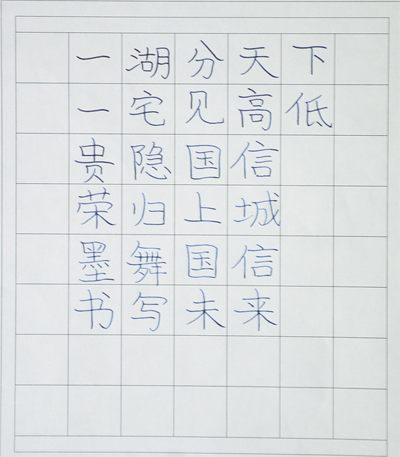 一湖分天下
一宅见高低
贵隐国信
荣归上城
墨舞国信
书写未来